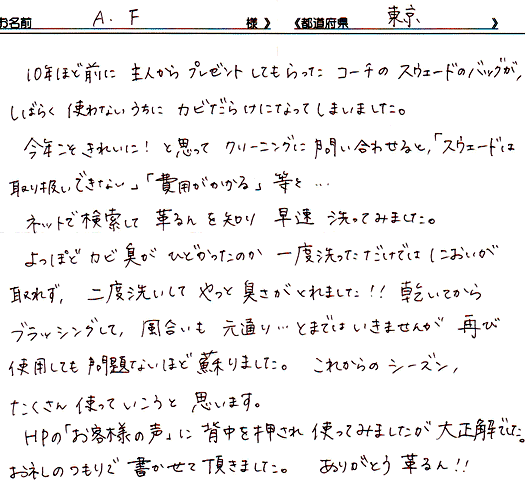 お名前 A.F 様》 《都道府県 東京 》
10年ほど前に 主人から プレゼントしてもらった コーチの スウェードのバッグが、
しばらく 使わないうちに カビだらけになってしまいました。
今年こそ きれいに! と思って クリーニングに 問い合わせると、「スウェードは
取り扱いできない」「費用がかかる」等と…
ネットで検索して 革るんを知り 早速 洗ってみました。
よっぽど カビ臭が ひどかったのか 一度洗っただけでは においが
取れず、二度洗いして やっと 臭さがとれました!! 乾いてから
ブラッシングして、風合いも 元通り…とまでは いきませんが 再び
使用しても 問題ないほど 蘇りました。 これからの シーズン、
たくさん 使って いこうと 思います。
HPの「お客様の声」に 背中を押され 使ってみましたが 大正解でした。
お礼のつもりで 書かせて頂きました。 ありがとう 革るん!!